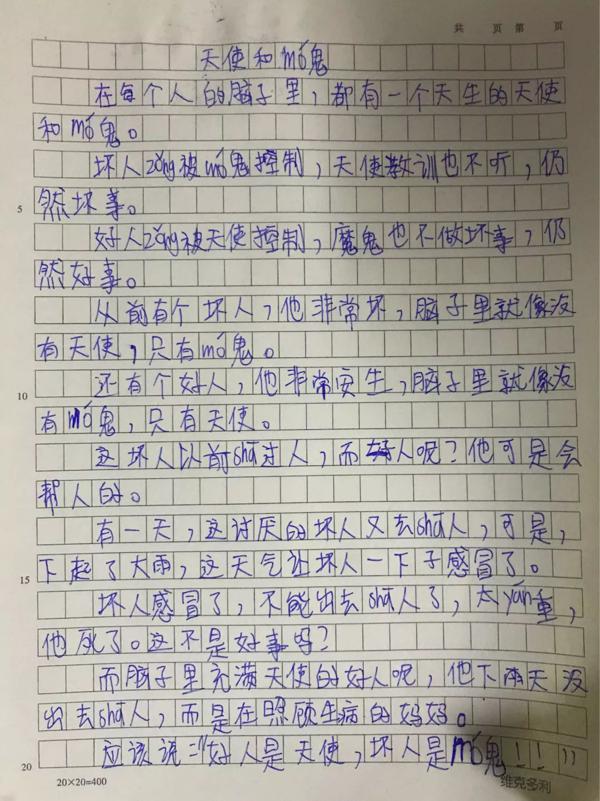 共 页 第 页
天使和mó鬼
在每个人的脑子里，都有一个天生的天使
和mó鬼。
坏人zǒng被mó鬼控制，天使教训也不听，仍
5
然坏事。
好人zǒng被天使控制，魔鬼也不做坏事，仍
然好事。
从前有个坏人，他非常坏，脑子里就像没
有天使，只有mó鬼。
10
还有个好人，他非常安生，脑子里就像没
有mó鬼，只有天使。
这坏人以前shā过人，而好人呢？他可是会
帮人的。
有一天，这讨厌的坏人又去shā人，可是，
下起了大雨，这天气让坏人一下子感冒了。
15
坏人感冒了，不能出去shā人了，太yán重，
他死了。这不是好事吗？
而脑子里充满天使的好人呢，他下雨天没
出去shā人，而是在照顾生病的妈妈。
应该说："好人是天使，坏人是mó鬼！！！"
20
20×20=400
维克多利